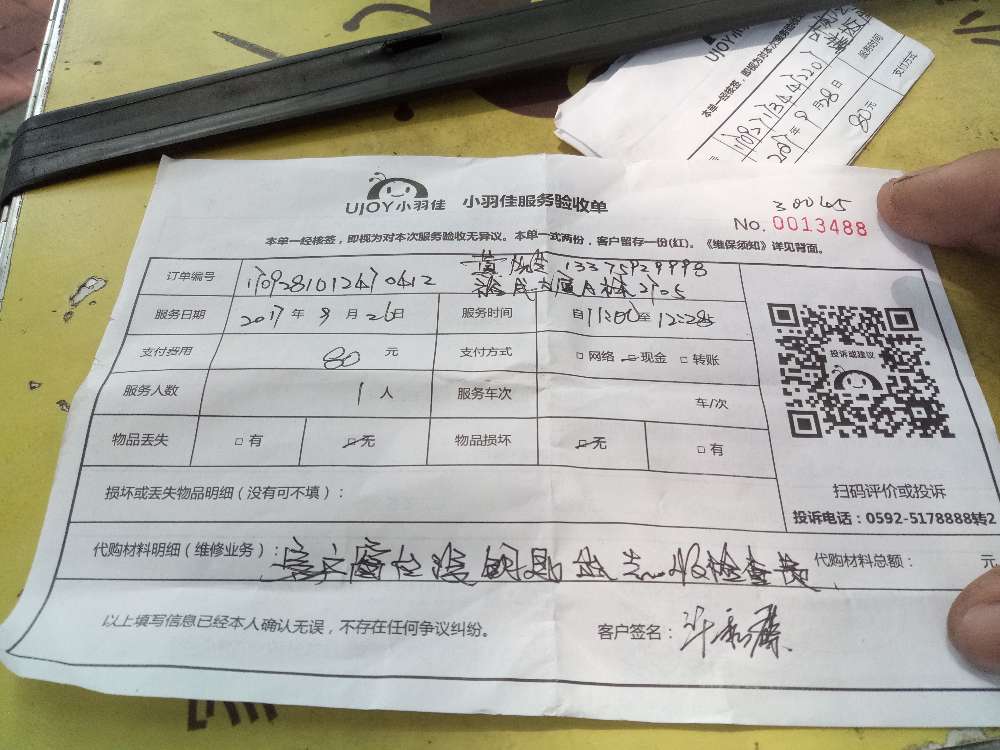 UJOY小
本单一经接签，即视为对本次服务验
服务时间
支付方式
80元
2017年9月28日
UJOY小羽佳 小羽佳服务验收单
30045
No. 0013488
本单一经接签，即视为对本次服务验收无异议。本单一式两份，客户留存一份(红)。《维保须知》详见背面。
订单编号 170928101247 0412 13375929998
服务日期 2017年9月26日 服务时间 自11:00至12:28
支付费用 80元 支付方式 □网络 □现金 □转账
服务人数 1人 服务车次 车/次
物品丢失 □有 □无 物品损坏 □无 □有
投诉或建议
损坏或丢失物品明细（没有可不填）：
扫码评价或投诉
投诉电话：0592-5178888转2
代购材料明细（维修业务）： 收检查费 代购材料总额： 元
以上填写信息已经本人确认无误，不存在任何争议纠纷。 客户签名：